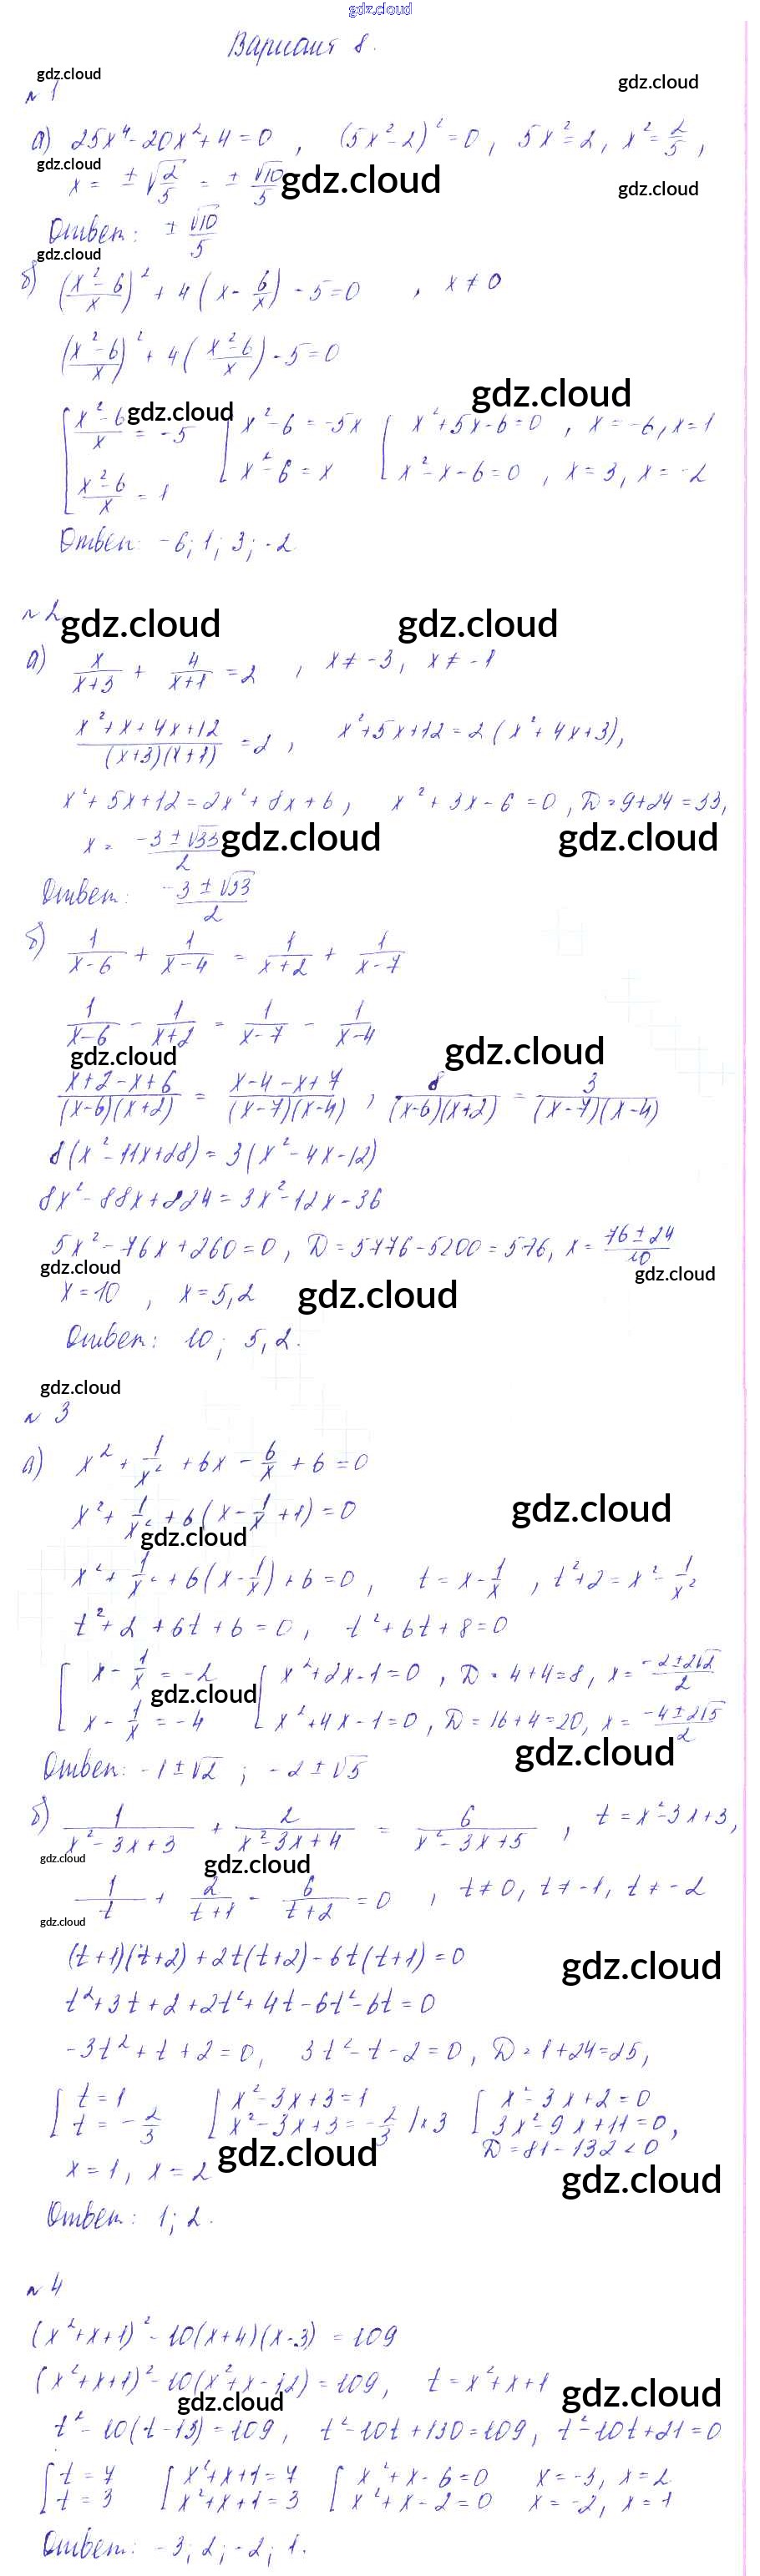 gdz.cloud
Вариант 8.
gdz.cloud
gdz.cloud
№ 1
а) 25x⁴ - 20x² + 4 = 0 , (5x² - 2)² = 0 , 5x² = 2 , x² = 2/5 ,
gdz.cloud
x = ± √(2/5) = ± √10/5
gdz.cloud
gdz.cloud
Ответ: ± √10/5
gdz.cloud
б) ((x² - 6)/x)² + 4(x - 6/x) - 5 = 0 , x ≠ 0
((x² - 6)/x)² + 4((x² - 6)/x) - 5 = 0
gdz.cloud
gdz.cloud
[ (x² - 6)/x = -5 [ x² - 6 = -5x [ x² + 5x - 6 = 0 , x = -6, x = 1
(x² - 6)/x = 1 x² - 6 = x x² - x - 6 = 0 , x = 3, x = -2
Ответ: -6; 1; 3; -2
№ 2
gdz.cloud
gdz.cloud
а) x/(x+3) + 4/(x+1) = 2 , x ≠ -3, x ≠ -1
(x² + x + 4x + 12)/((x+3)(x+1)) = 2 , x² + 5x + 12 = 2(x² + 4x + 3),
x² + 5x + 12 = 2x² + 8x + 6 , x² + 3x - 6 = 0 , D = 9 + 24 = 33,
x = (-3 ± √33)/2
gdz.cloud
gdz.cloud
Ответ: (-3 ± √33)/2
б) 1/(x-6) + 1/(x-4) = 1/(x+2) + 1/(x-7)
1/(x-6) - 1/(x+2) = 1/(x-7) - 1/(x-4)
gdz.cloud
gdz.cloud
(x+2-x+6)/((x-6)(x+2)) = (x-4-x+7)/((x-7)(x-4)) , 8/((x-6)(x+2)) = 3/((x-7)(x-4))
8(x² - 11x + 28) = 3(x² - 4x - 12)
8x² - 88x + 224 = 3x² - 12x - 36
5x² - 76x + 260 = 0 , D = 5776 - 5200 = 576, x = (76 ± 24)/10
gdz.cloud
gdz.cloud
x = 10 , x = 5,2
gdz.cloud
Ответ: 10; 5,2.
gdz.cloud
№ 3
а) x² + 1/x² + 6x - 6/x + 6 = 0
x² + 1/x² + 6(x - 1/x + 1) = 0
gdz.cloud
gdz.cloud
x² + 1/x² + 6(x - 1/x) + 6 = 0 , t = x - 1/x , t² + 2 = x² - 1/x²
t² + 2 + 6t + 6 = 0 , t² + 6t + 8 = 0
[ x - 1/x = -2 [ x² + 2x - 1 = 0 , D = 4 + 4 = 8, x = (-2 ± 2√2)/2
gdz.cloud
x - 1/x = -4 x² + 4x - 1 = 0 , D = 16 + 4 = 20, x = (-4 ± 2√5)/2
gdz.cloud
Ответ: -1 ± √2 ; -2 ± √5
б) 1/(x² - 3x + 3) + 2/(x² - 3x + 4) = 6/(x² - 3x + 5) , t = x² - 3x + 3,
gdz.cloud
gdz.cloud
1/t + 2/(t+1) - 6/(t+2) = 0 , t ≠ 0, t ≠ -1, t ≠ -2
gdz.cloud
(t+1)(t+2) + 2t(t+2) - 6t(t+1) = 0
gdz.cloud
t² + 3t + 2 + 2t² + 4t - 6t² - 6t = 0
-3t² + t + 2 = 0, 3t² - t - 2 = 0, D = 1 + 24 = 25,
[ t = 1 [ x² - 3x + 3 = 1 [ x² - 3x + 2 = 0
t = -2/3 x² - 3x + 3 = -2/3 |×3 3x² - 9x + 11 = 0,
D = 81 - 132 < 0
x = 1, x = 2
gdz.cloud
gdz.cloud
Ответ: 1; 2.
№ 4
(x² + x + 1)² - 10(x+4)(x-3) = 109
(x² + x + 1)² - 10(x² + x - 12) = 109, t = x² + x + 1
gdz.cloud
gdz.cloud
t² - 10(t - 13) = 109 , t² - 10t + 130 = 109, t² - 10t + 21 = 0
[ t = 7 [ x² + x + 1 = 7 [ x² + x - 6 = 0 x = -3, x = 2
t = 3 x² + x + 1 = 3 x² + x - 2 = 0 x = -2, x = 1
Ответ: -3; 2; -2; 1.